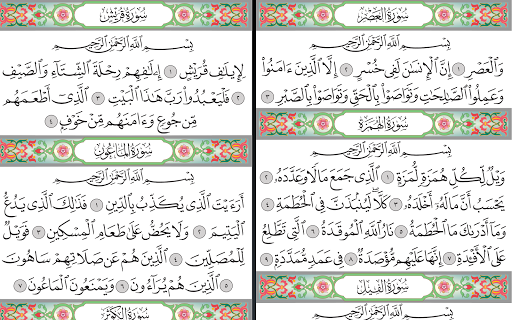 سُورَةُ العَصْرِ
بِسْمِ ٱللَّهِ ٱلرَّحْمَٰنِ ٱلرَّحِيمِ
وَٱلْعَصْرِ ١ إِنَّ ٱلْإِنسَٰنَ لَفِى خُسْرٍ ٢ إِلَّا ٱلَّذِينَ ءَامَنُوا۟
وَعَمِلُوا۟ ٱلصَّٰلِحَٰتِ وَتَوَاصَوْا۟ بِٱلْحَقِّ وَتَوَاصَوْا۟ بِٱلصَّبْرِ ٣
سُورَةُ الهُمَزَةِ
بِسْمِ ٱللَّهِ ٱلرَّحْمَٰنِ ٱلرَّحِيمِ
وَيْلٌ لِّكُلِّ هُمَزَةٍ لُّمَزَةٍ ١ ٱلَّذِى جَمَعَ مَالًا وَعَدَّدَهُۥ ٢
يَحْسَبُ أَنَّ مَالَهُۥٓ أَخْلَدَهُۥ ٣ كَلَّا لَيُنۢبَذَنَّ فِى ٱلْحُطَمَةِ ٤
وَمَآ أَدْرَىٰكَ مَا ٱلْحُطَمَةُ ٥ نَارُ ٱللَّهِ ٱلْمُوقَدَةُ ٦ ٱلَّتِى تَطَّلِعُ
عَلَى ٱلْأَفْـِٔدَةِ ٧ إِنَّهَا عَلَيْهِم مُّؤْصَدَةٌ ٨ فِى عَمَدٍ مُّمَدَّدَةٍۭ ٩
سُورَةُ الفِيلِ
بِسْمِ ٱللَّهِ ٱلرَّحْمَٰنِ ٱلرَّحِيمِ
سُورَةُ قُرَيْشٍ
بِسْمِ ٱللَّهِ ٱلرَّحْمَٰنِ ٱلرَّحِيمِ
لِإِيلَٰفِ قُرَيْشٍ ١ إِۦلَٰفِهِمْ رِحْلَةَ ٱلشِّتَآءِ وَٱلصَّيْفِ
٢ فَلْيَعْبُدُوا۟ رَبَّ هَٰذَا ٱلْبَيْتِ ٣ ٱلَّذِىٓ أَطْعَمَهُم
مِّن جُوعٍ وَءَامَنَهُم مِّنْ خَوْفٍۭ ٤
سُورَةُ المَاعُونِ
بِسْمِ ٱللَّهِ ٱلرَّحْمَٰنِ ٱلرَّحِيمِ
أَرَءَيْتَ ٱلَّذِى يُكَذِّبُ بِٱلدِّينِ ١ فَذَٰلِكَ ٱلَّذِى يَدُعُّ
ٱلْيَتِيمَ ٢ وَلَا يَحُضُّ عَلَىٰ طَعَامِ ٱلْمِسْكِينِ ٣ فَوَيْلٌ
لِّلْمُصَلِّينَ ٤ ٱلَّذِينَ هُمْ عَن صَلَاتِهِمْ سَاهُونَ
٥ ٱلَّذِينَ هُمْ يُرَآءُونَ ٦ وَيَمْنَعُونَ ٱلْمَاعُونَ ٧
سُورَةُ الكَوْثَرِ